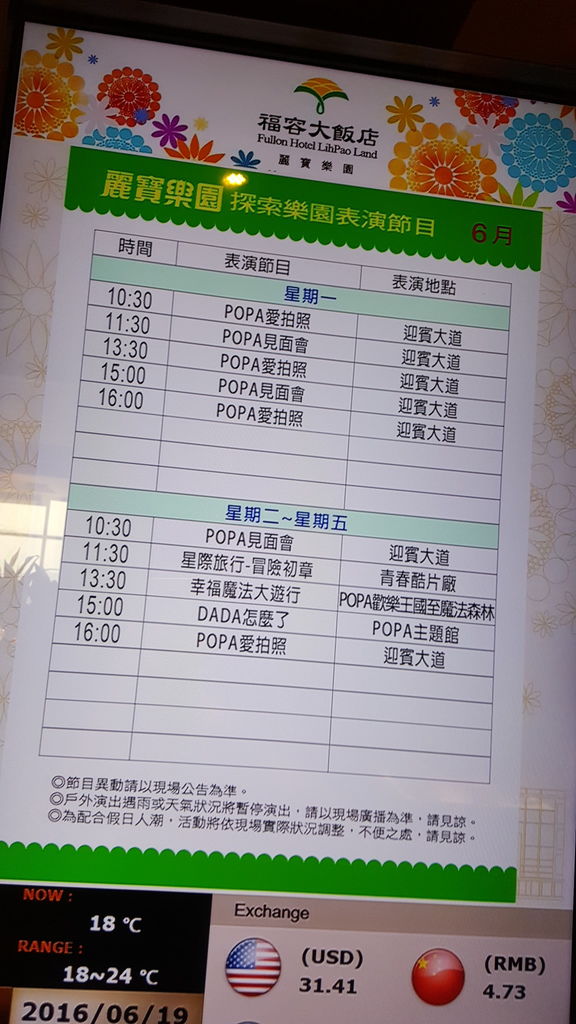 福容大飯店
Fullon Hotel LihPao Land
麗寶樂園
麗寶樂園 探索樂園表演節目 6月
時間 表演節目 表演地點
星期一
10:30 POPA愛拍照 迎賓大道
11:30 POPA見面會 迎賓大道
13:30 POPA愛拍照 迎賓大道
15:00 POPA見面會 迎賓大道
16:00 POPA愛拍照 迎賓大道
星期二~星期五
10:30 POPA見面會 迎賓大道
11:30 星際旅行-冒險初章 青春酷片廠
13:30 幸福魔法大遊行 POPA歡樂王國至魔法森林
15:00 DADA怎麼了 POPA主題館
16:00 POPA愛拍照 迎賓大道
◎節目異動請以現場公告為準。
◎戶外演出遇雨或天氣狀況將暫停演出，請以現場廣播為準，請見諒。
◎為配合假日人潮，活動將依現場實際狀況調整，不便之處，請見諒。
NOW :
18 ℃
RANGE :
18~24 ℃
2016/06/19
Exchange
(USD)
31.41
(RMB)
4.73